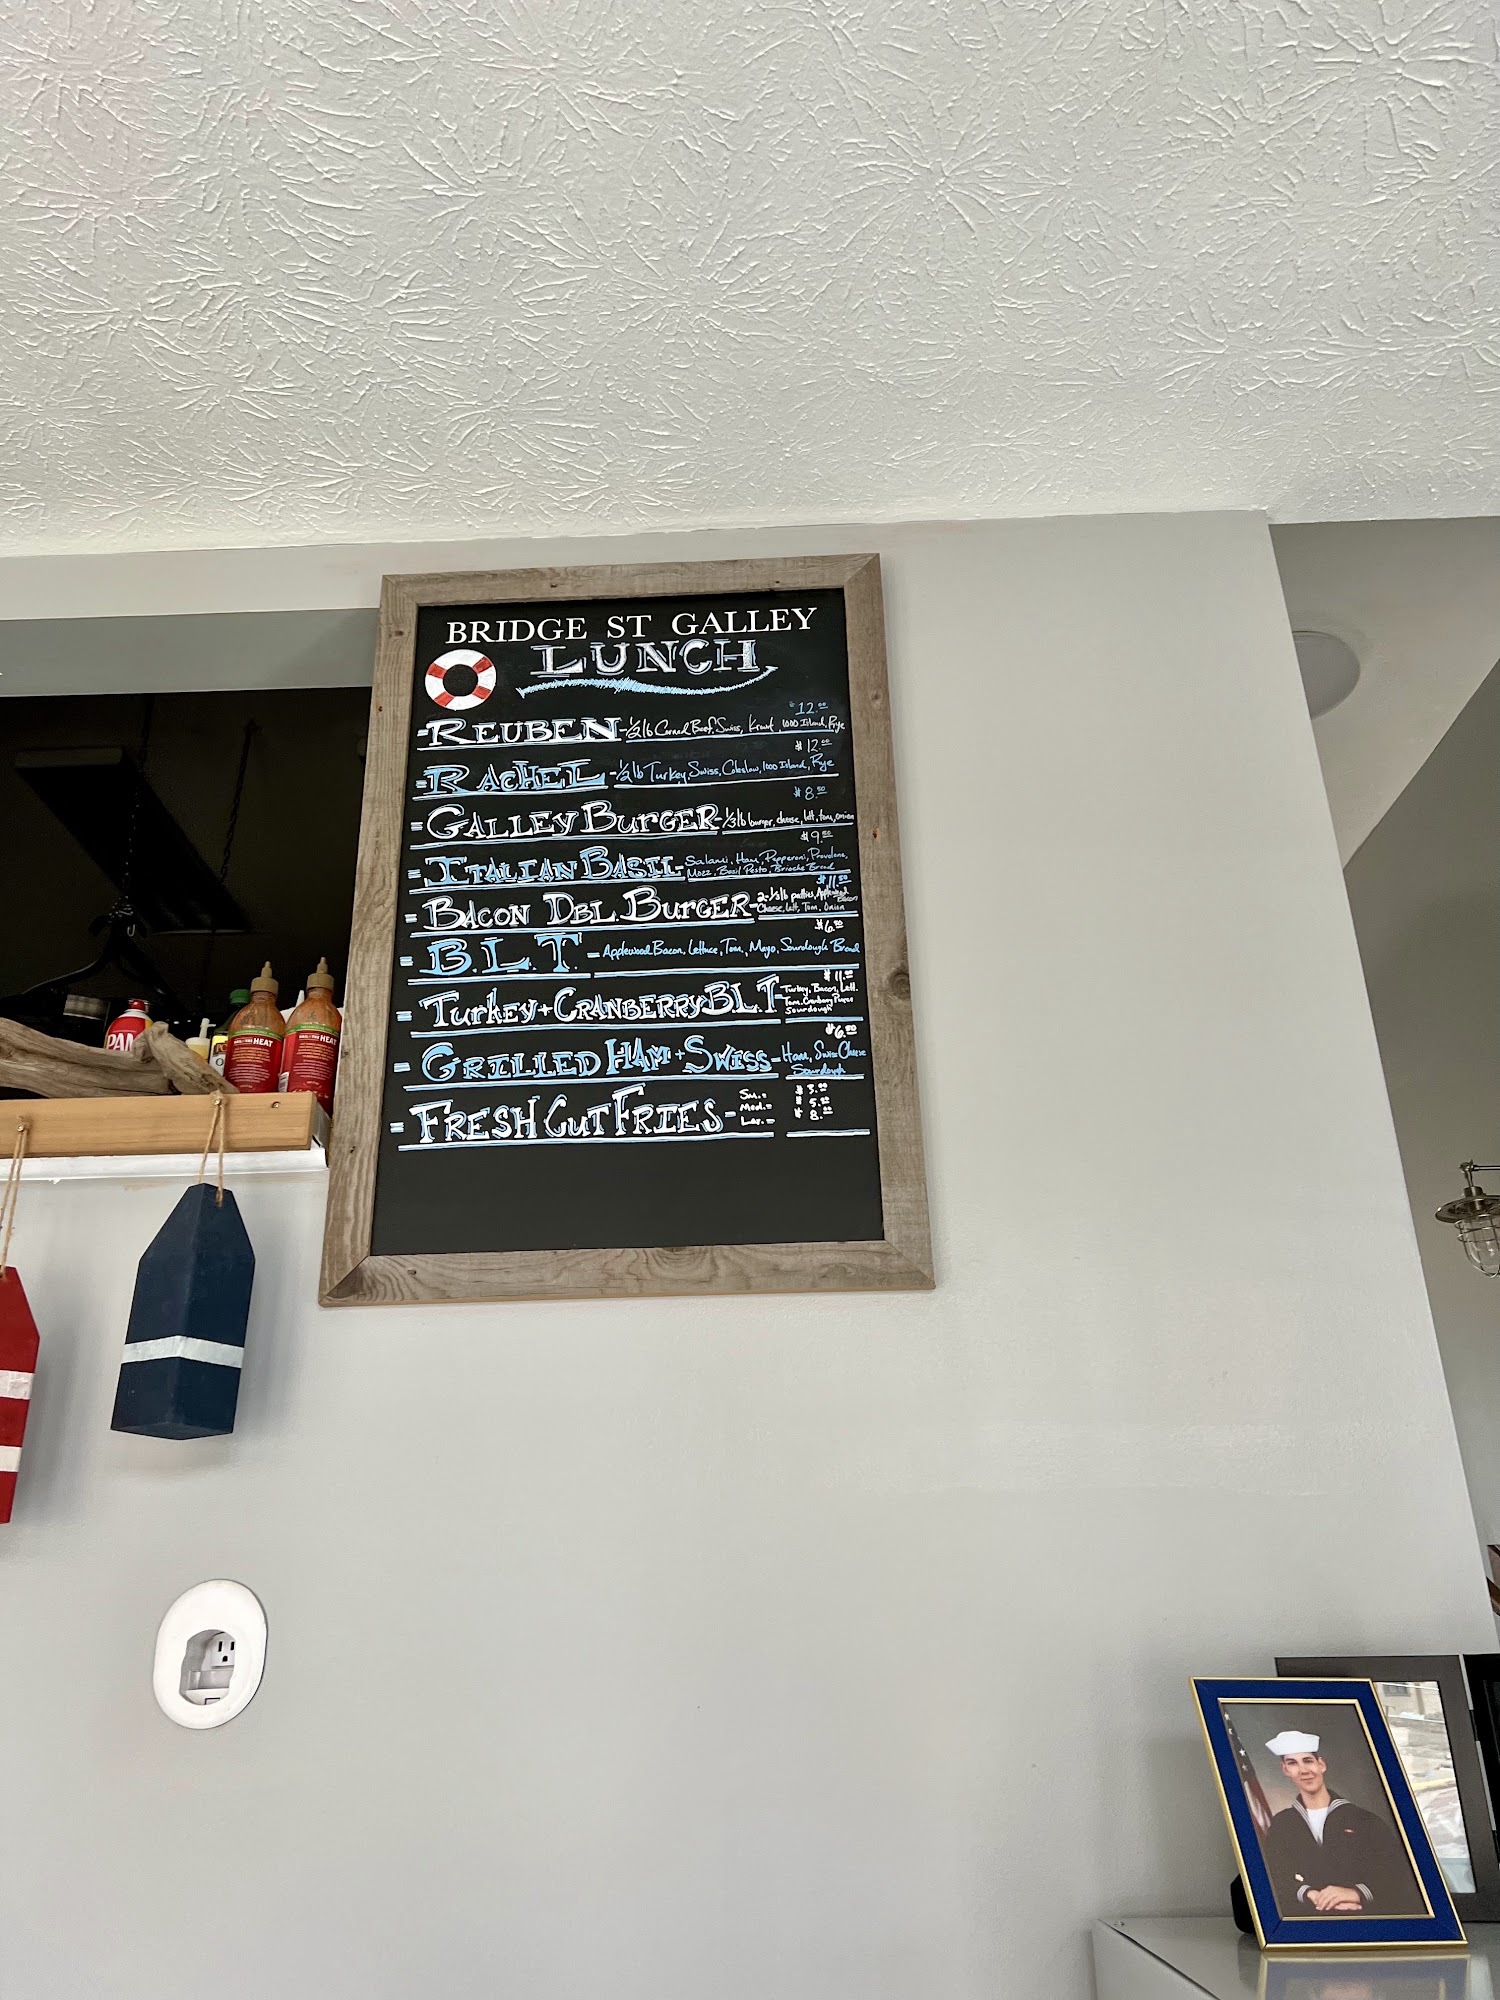 BRIDGE ST GALLEY
LUNCH
$12.00
-REUBEN-1/2lb Corned Beef, Swiss, Kraut, 1000 Island, Rye
$12.00
=RACHEL-1/2lb Turkey, Swiss, Coleslaw, 1000 Island, Rye
$8.50
=GALLEY BURGER-1/3lb burger, cheese, lett, tom, onion
$9.50
=ITALIAN BASIL-Salami, Ham, Pepperoni, Provolone,
Mozz, Basil Pesto, Brioche Bread
$11.50
=BACON DBL. BURGER-2-1/3lb patties, Applewood Bacon
Cheese, Lett, Tom, Onion
$6.50
=B.L.T.-Applewood Bacon, Lettuce, Tom, Mayo, Sourdough Bread
$11.00
=TURKEY+CRANBERRY B.L.T-Turkey, Bacon, Lett.
Tom. Cranberry
Sourdough
$6.50
=GRILLED HAM+SWISS-Ham, Swiss Cheese
Sourdough
=FRESH CUT FRIES-
Sm.= $3.00
Med.= $5.00
Lar.= $8.00
PAM
HEAT
HEAT